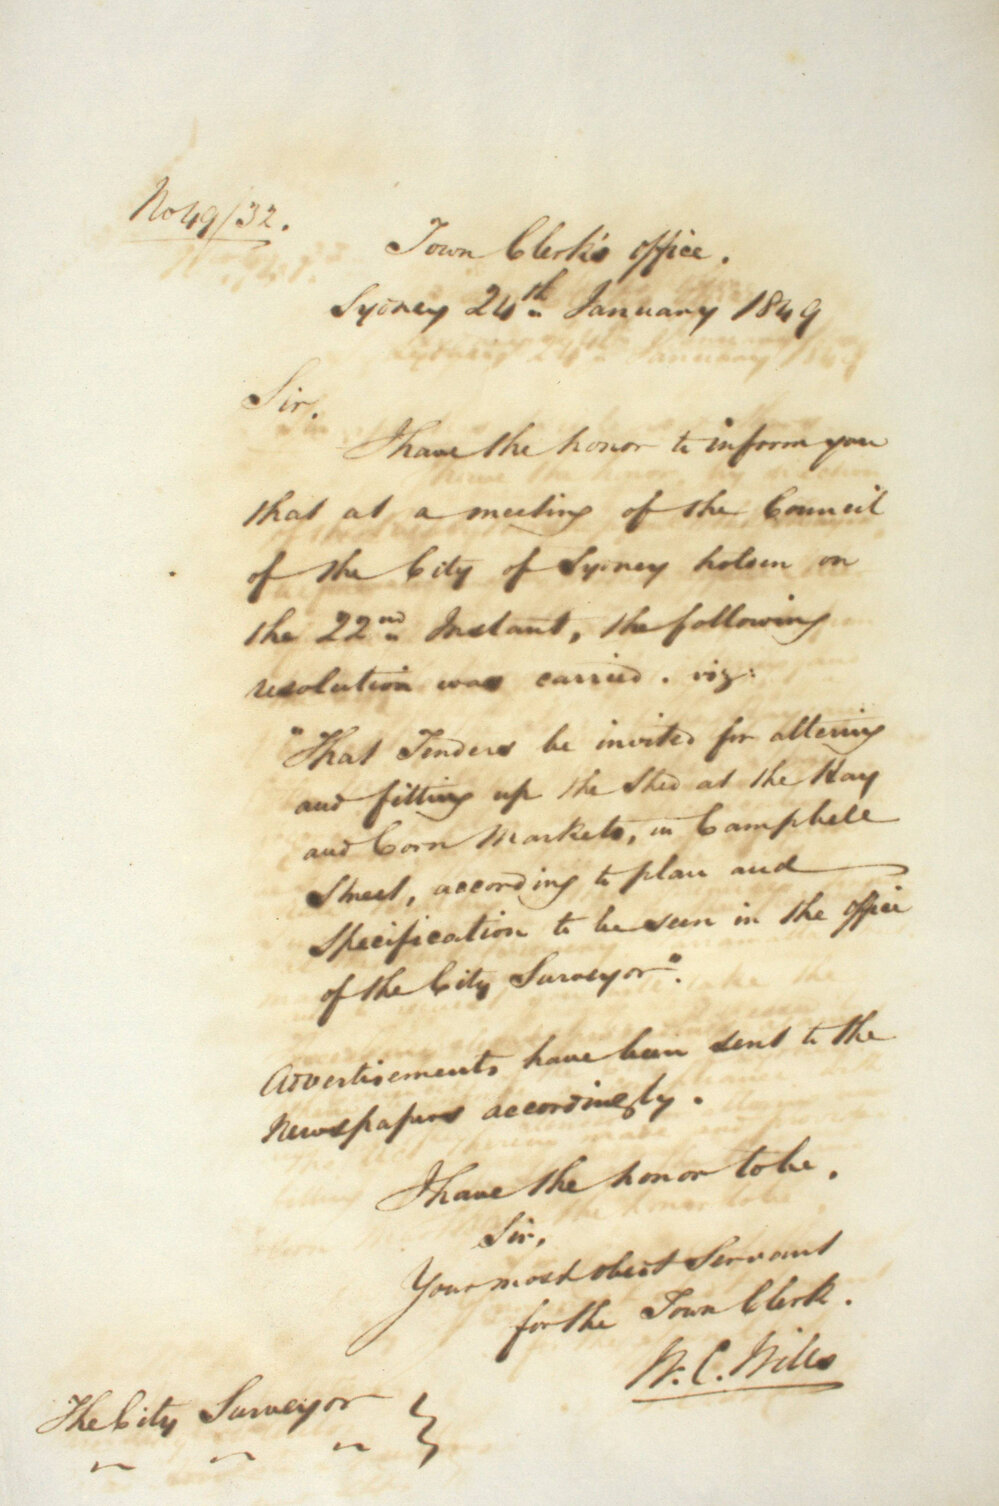 No 49/32.
Town Clerk's office.
Sydney 24th January 1849
Sir,
I have the honor to inform you
that at a meeting of the Council
of the City of Sydney holden on
the 22nd Instant, the following
resolution was carried. viz:
"That Tenders be invited for altering
and fitting up the Shed at the Hay
and Corn Markets, in Campbell
Street, according to plan and
Specification to be seen in the office
of the City Surveyor".
Advertisements have been sent to the
Newspapers accordingly.
I have the honor to be,
Sir,
Your most obedt Servant
for the Town Clerk.
W. C. Wills
The City Surveyor